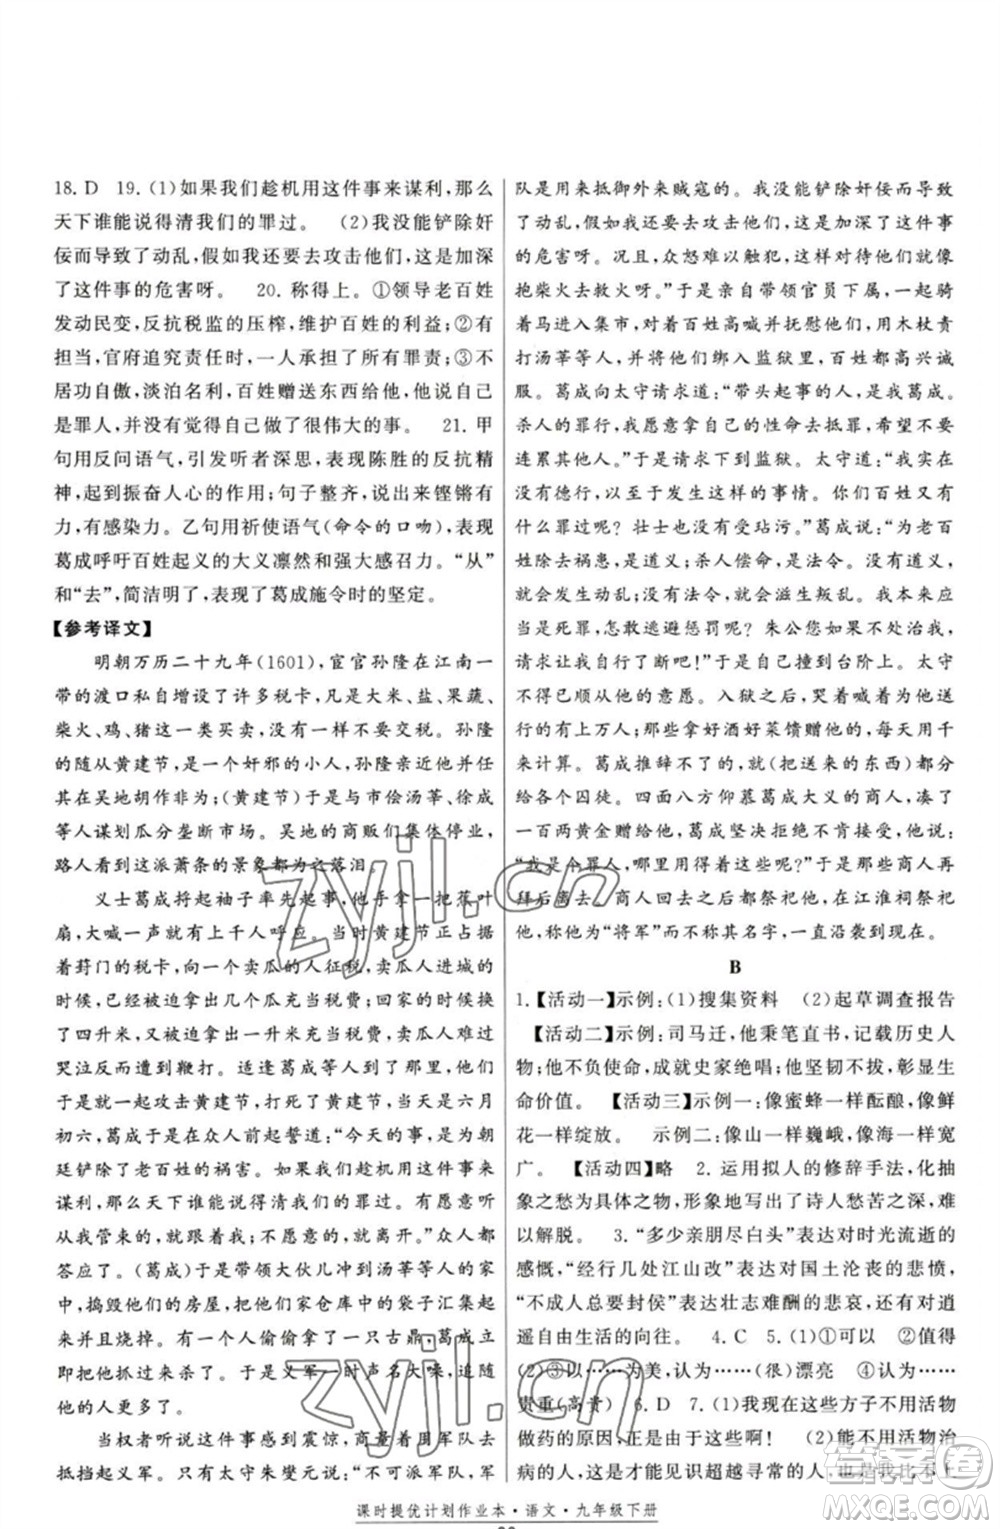 18. D　19. (1)如果我们趁机用这件事来谋利,那么
天下谁能说得清我们的罪过。　(2)我没能铲除奸
佞而导致了动乱,又用军队去攻击他们,这是加深
了这件事的危害呀。　20. 称得上。①领导老百姓
发动民变,反抗税监的压榨,维护百姓的利益;②有
担当,官府追究责任时,一人承担了所有罪责;③不
居功自傲,淡泊名利,百姓赠送东西给他,他说自己
是罪人,并没有觉得自己做了很伟大的事。　21. 甲
句用反问语气,引发听者深思,表现陈胜的反抗精
神,起到振奋人心的作用;句子整齐,读来铿锵有
力,有感染力。乙句用祈使语气(命令的口吻),表现
葛成呼吁百姓起义的大义凛然和强大感召力。“从”
和“去”,简洁明了,表现了葛成施令时的坚定。
【参考译文】
明朝万历二十九年(1601),宦官孙隆在江南一
带的渡口私自增设了许多税卡,凡是大米、盐、果蔬、
柴火、鸡、猪这一类买卖,没有一样不要交税。孙隆
的随从黄建节是一个奸邪的小人,孙隆亲近他并任
其在吴地胡作非为;(黄建节)于是与市侩汤莘、徐成
等人谋划瓜分垄断市场。吴地的商贩们集体停业,
路人看到这派萧条的景象都为之落泪。
义士葛成将起袖子率先起事,他手拿一把蕉叶
扇,大喊一声就有上千人呼应。当时黄建节正占据
着葑门的税卡,向卖瓜的人征税,卖瓜人进城的
时候,已经被迫拿出几个瓜充当税费;回家的时候换
了四升米,又被迫拿出一升米充当税费,卖瓜人难过
哭泣反而遭到了鞭打。适逢葛成等人来到这里,于是
大家就一起攻击黄建节,打死了黄建节。当天是六月
初六,葛成于是在众人前起誓道:“今天的事情,是为朝
廷铲除了老百姓的祸害啊。如果我们趁机用这件事来
谋利,那么天下谁能说得清我们的罪过。有愿意听
从我管束的,就来;不能够做到的,就离开。”大家都
答应了。(葛成)于是带领大伙儿冲到汤莘等人的家
中,捣毁他们的房屋,把他们仓库中的袋子汇集起来
并且烧掉。有一个人偷偷拿了一只古鼎,葛成立即
追回来并把他杀了。于是义军一时声名大噪,追随
他的人更多了。
当权者听说这件事感到震惊,商量着用军队去
抵挡起义军。只有太守朱燮元说:“不可派军队,军
队是用来抵御外来贼寇的啊。我没能铲除奸佞而导
致了动乱,又用军队去攻击他们,这是加深了这件事
的危害呀。况且,众怒难以触犯,这样做难道不是要
抱柴火去救火呀。”于是亲自带领官员五六个人,骑
着马进入集市,对着百姓高喊并抚慰他们,用木杖责
打汤莘等人,把他们绑入监狱里,百姓都高兴诚
服。葛成向太守请求道:“带头起事的人,是我葛成。
杀人的罪行,我愿意用自己的性命去抵罪,希望不要
连累其他人。”于是请求下到监狱。太守道:“是我实在
没有德行,以至于发生这样的事情。你们百姓又有
什么罪过?壮士只会与我一起受玷污。”葛成说:“为老百
姓除去祸患,是道义;杀人偿命,是法令。没有道义,
就会发生动乱;没有法令,就会滋生叛乱。我本来应
当死罪,怎敢躲避惩罚呢?朱公您如果不处治我,
请求让我自行了断吧!”于是奔入监狱。太守
不得已顺从他的意愿。入狱的时候,哭着喊着送他
的有上万人;那些拿好酒好菜馈赠他的人,每天用千
来计算。葛成推辞不了,就(把送来的东西)都分
给各个囚徒。四面八方仰慕葛成大义的商人,凑了
一百两黄金赠给他,葛成坚决拒绝不肯接受,他说:
“我是个罪人,哪里用得着这些呢?”于是那些商人再
拜后离去。葛成死后,大家都崇敬他,在江淮祠祭祀
他,称为“将军”而不称其名字,一直沿袭到现在。
B
1.【活动一】示例:(1)搜集资料　(2)起草调查报告
【活动二】示例:司马迁,他秉笔直书,记载历史人
物;他不负使命,成就史家绝唱;他坚韧不拔,彰显生
命价值。　【活动三】示例一:像蜜蜂一样酝酿,像鲜
花一样绽放。　示例二:像山一样巍峨,像海一样宽
广。　【活动四】略　2. 运用拟人的修辞手法,化抽
象之愁为具体之物,形象地写出了诗人愁苦之深,难
以解脱。　3. “多少亲朋尽白头”表达对时光流逝的
感慨,“经行几处江山改”表达对国土沦丧的悲愤,
“不成人总要封侯”表达壮志难酬的悲哀,还有对逍
遥自由生活的向往。　4. C　5. (1)①可以　②值得
(2)③以……为美,认为……(很)漂亮　④认为……
贵重(高贵)　6. D　7. (1)我现在这些方子不用活物
做药的原因,正在于这个啊!　(2)能不用活物治
病的人,这是才能见识超越寻常的人,是我比不上
课时提优计划作业本·语文·九年级下册
zyjl.cn
zyjl.cn
答案圈
MXQE.COM